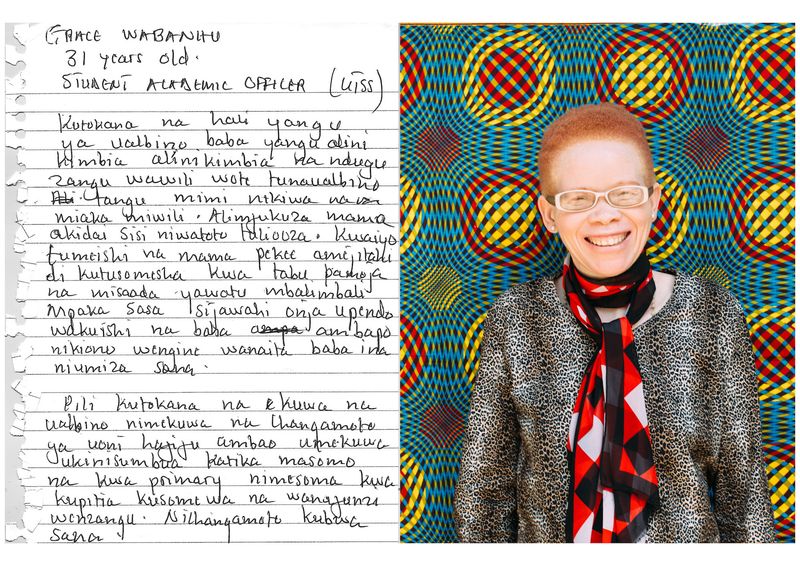 GRACE WABANHU
31 years old.
STUDENT ACADEMIC OFFICER (UTSS)
Kutokana na hali yangu
ya ualbino baba yangu alini
kimbia alinikimbia na ndugu
zangu wawili wote tunaualbino
tangu mimi nikiwa na
miaka miwili. Alimfukuza mama
akidai sisi niwatoto tuliooza. Kwaiyo
tumeishi na mama pekee amejitahi
di kutusomesha kwa tabu pamoja
na misaada yawatu mbalimbali
Mpaka Sasa sijawahi onja upendo
wakuishi na baba ambapo
nikiona wengine wanaita baba ina
niumiza sana.
Pili kutokana na kuwa na
ualbino nimekuwa na Changamoto
ya uoni hafifu ambao umekuwa
ukinisumbua katika masomo
na kwa primary nimesoma kwa
kupitia kusomewa na wanafunzi
wenzangu. Nichangamoto kubwa
sana.